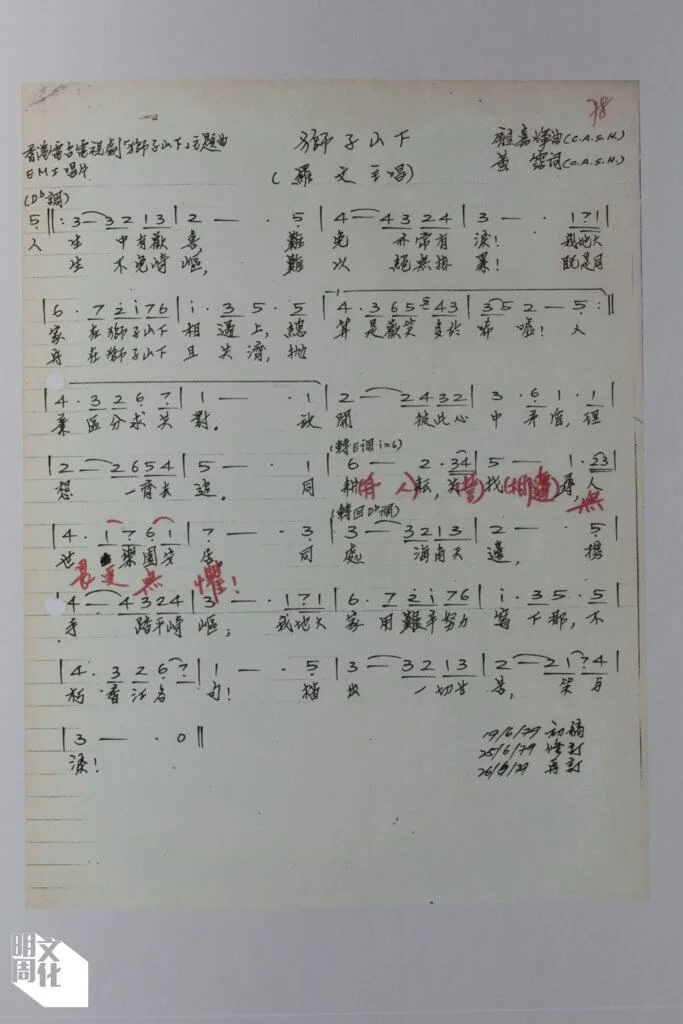 78
香港電台電視劇「獅子山下」主題曲
獅子山下
顧嘉煇曲(C.A.S.H.)
EMI唱片
(羅文主唱)
黃霑詞(C.A.S.H.)
(D♭調)
5 ‖: 3 — 3 2 1 3 | 2 — · 5 | 4 — 4 3 2 4 | 3 — · 1 7 1 |
人 生 中有歡 喜, 難 免 亦常有 淚! 我地大
生 不免崎 嶇, 難 以 絕無掛 累! 既是同
| 6 · 7 2 i 7 6 | i · 3 5 · 5 | 4 · 3 6 5 4 3 | 3 5 2 — 5 :‖
家 在獅子山下 相 遇上, 總 算 是歡笑 多於 唏 噓! 人
舟 在獅子山下 且 共濟, 拋
| 4 · 3 2 6 7 | 1 — · 1 | 2 — 2 4 3 2 | 3 · 6 1 · 1 |
棄 區分求共 對. 放 開 彼此心 中 矛盾, 理
(轉E調 i=6)
| 2 — 2 6 5 4 | 5 — · 1 | 6 — 2 · 3 4 | 5 — 1 · 2 3 |
想 一齊去 追. 同 耕 耘, 共 找 尋, 人
(舟 人) 誓 (相隨) 無
(轉回D♭調)
| 4 · 1 7 6 1 | 7 — · 3 | 3 — 3 2 1 3 | 2 — · 5 |
世 樂園安 居. 同 處 海角天 邊, 携
畏更無 懼!
| 4 — 4 3 2 4 | 3 — · 1 7 1 | 6 · 7 2 i 7 6 | i · 3 5 · 5 |
手 踏平崎 嶇, 我地大 家 用艱辛努力 寫 下那, 不
| 4 · 3 2 6 7 | 1 — · 5 | 3 — 3 2 1 3 | 2 — 2 1 7 4 |
朽 香江名 句! 描 出 一切甘 苦, 笑 与
| 3 — · 0 ‖
淚!
19/6/79 初稿
25/6/79 修訂
26/6/79 再訂
明周文化